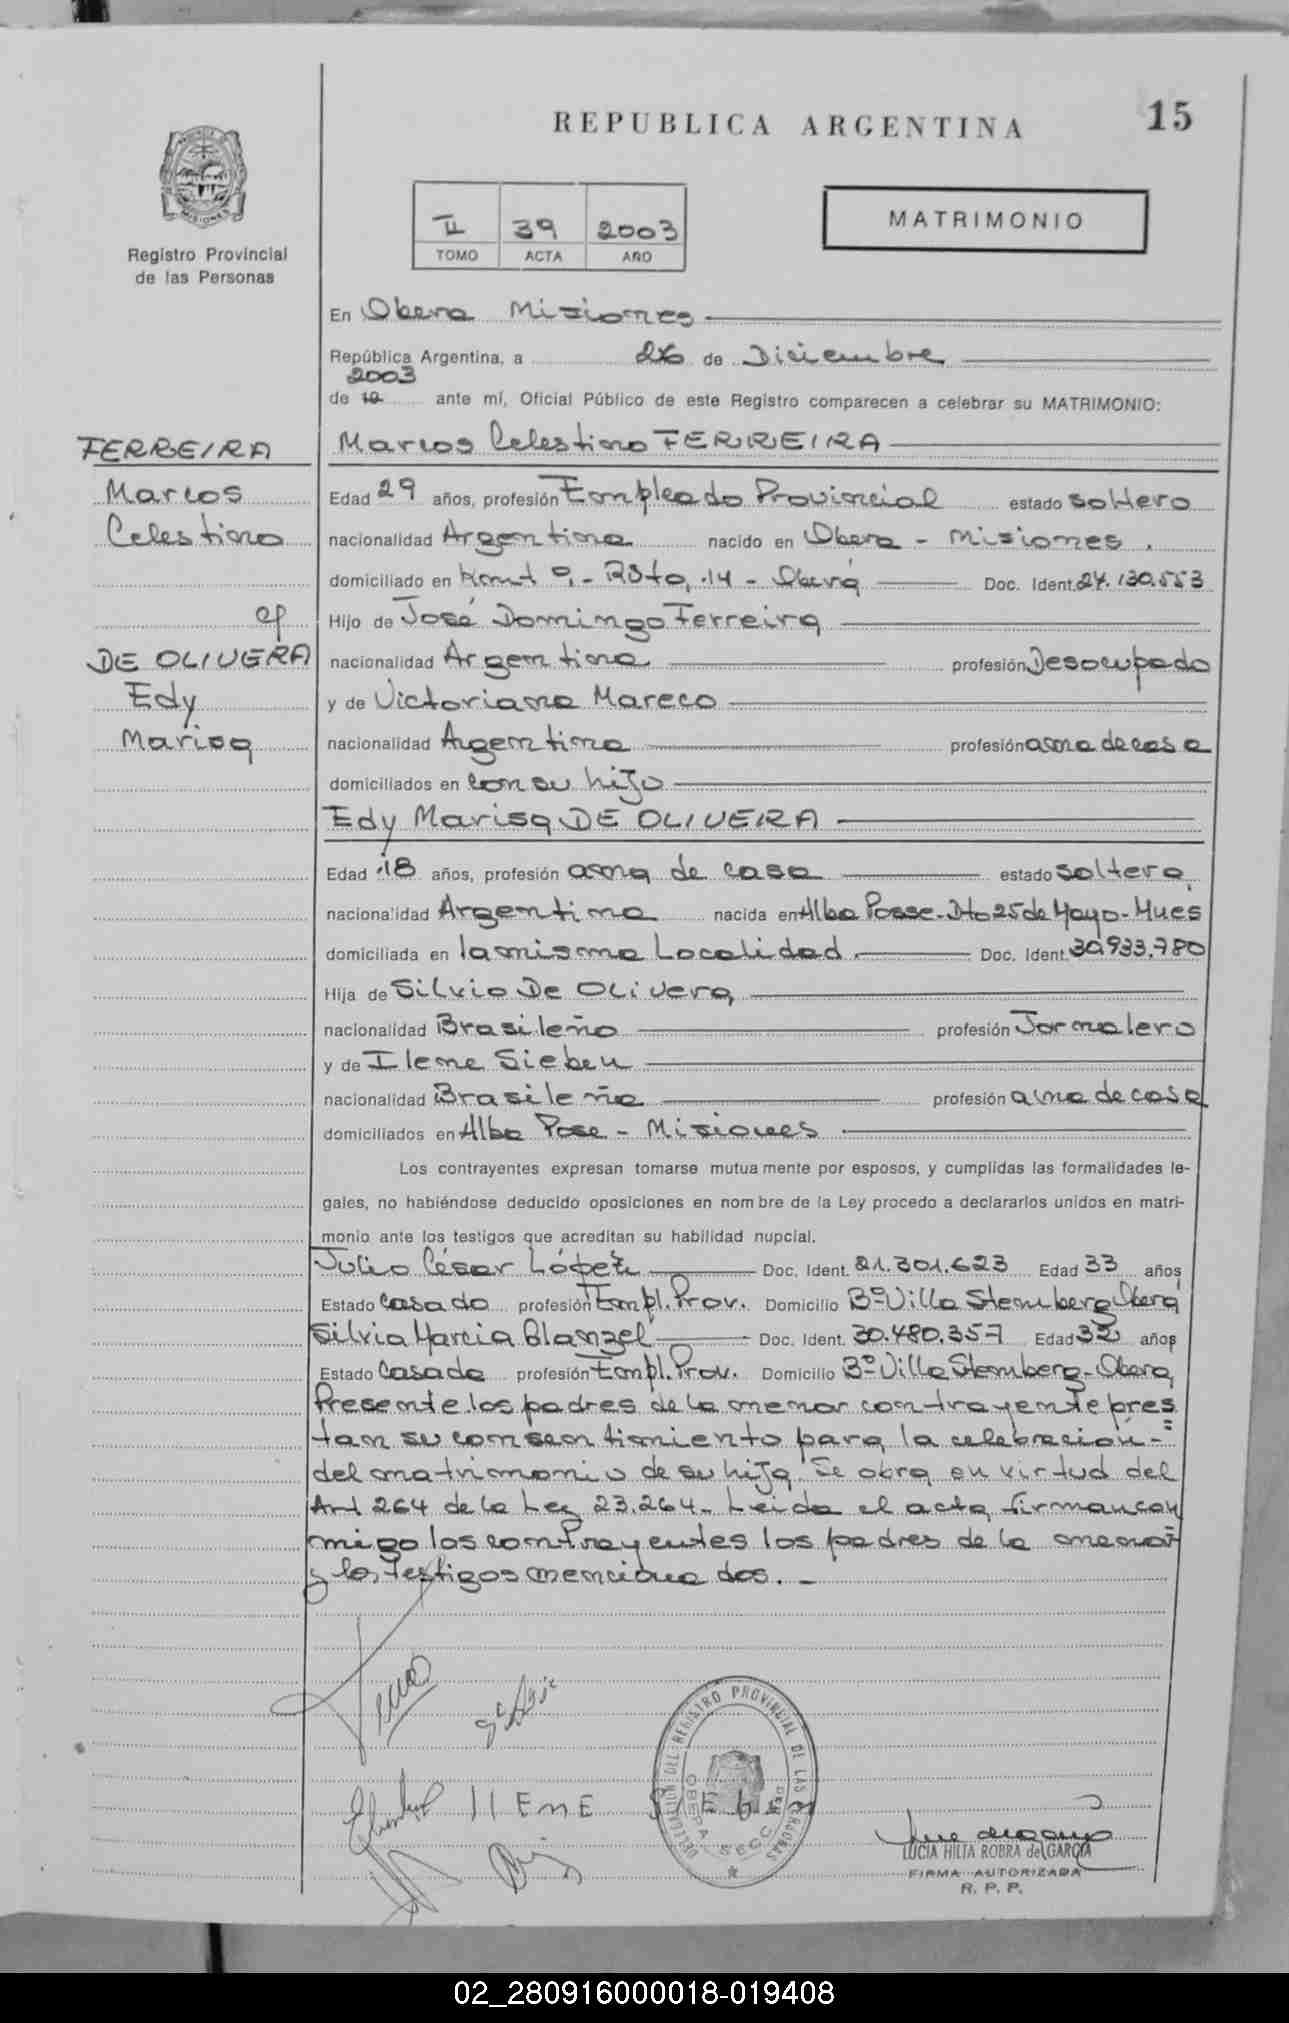 REPUBLICA ARGENTINA
15
MISIONES
Registro Provincial
de las Personas
II 39 2003
TOMO ACTA AÑO
MATRIMONIO
En Obera Misiones
República Argentina, a 26 de Diciembre
2003
de 19 ante mí, Oficial Público de este Registro comparecen a celebrar su MATRIMONIO:
FERREIRA
Marcos
Celestino
c/
DE OLIVERA
Edy
Marisa
Marcos Celestino FERREIRA
Edad 29 años, profesión Empleado Provincial estado soltero
nacionalidad Argentina nacido en Obera - Misiones.
domiciliado en Kmt 9,- Rta, 14 - Oberá Doc. Ident. 24.130.553
Hijo de José Domingo Ferreira
nacionalidad Argentina profesión Desocupado
y de Victoriana Mareco
nacionalidad Argentina profesión ama de casa
domiciliados en con su hijo
Edy Marisa DE OLIVEIRA
Edad 18 años, profesión ama de casa estado soltera
nacionalidad Argentina nacida en Alba Posse-Dto 25 de Mayo-Mnes
domiciliada en la misma Localidad. Doc. Ident. 30.933.780
Hija de Silvio De Olivera
nacionalidad Brasileño profesión Jornalero
y de Ilene Siebeu
nacionalidad Brasileña profesión ama de casa
domiciliados en Alba Pose - Misiones
Los contrayentes expresan tomarse mutuamente por esposos, y cumplidas las formalidades le-
gales, no habiéndose deducido oposiciones en nombre de la Ley procedo a declararlos unidos en matri-
monio ante los testigos que acreditan su habilidad nupcial.
Julio César López Doc. Ident. 21.301.623 Edad 33 años
Estado casado profesión Empl. Prov. Domicilio Bº Villa Stemberg Oberá
Silvia Marcia Blanzel Doc. Ident. 30.480.357 Edad 32 años
Estado casada profesión Empl. Prov. Domicilio Bº Villa Stemberg-Obera
Presente los padres de la menor contrayente pres
tan su consentimiento para la celebración-=
del matrimonio de su hija. Se obra en virtud del
Art 264 de la Ley 23.264.- Leida el acta, firman con
migo los contrayentes los padres de la menor
y los testigos mencionados.-
11 EnE
DELEGACION DEL REGISTRO PROVINCIAL DE LAS PERSONAS
OBERA SECC.
LUCIA HILTA ROBRA de GARCIA
FIRMA AUTORIZADA
R. P. P.
02_280916000018-019408